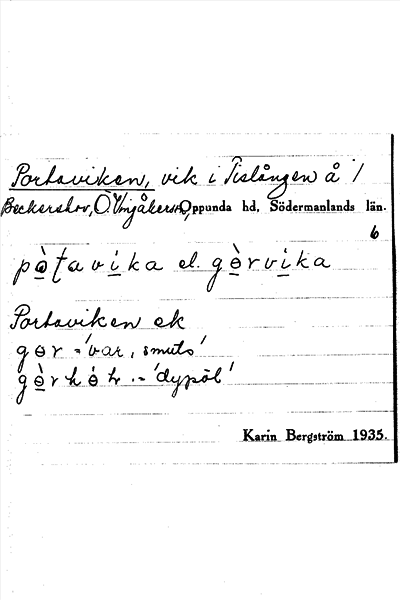 Portaviken, vik i Tislången å 1
Beckershov, Ö. Vingåkers sn, Oppunda hd, Södermanlands län.
6
pɵ̀ʈavi̱ka el. gɵ̀rvi̱ka
Portaviken ek
gɵr = 'var, smuts'
gɵ̀rhɵ́ .= 'dypöl'
Karin Bergström 1935.